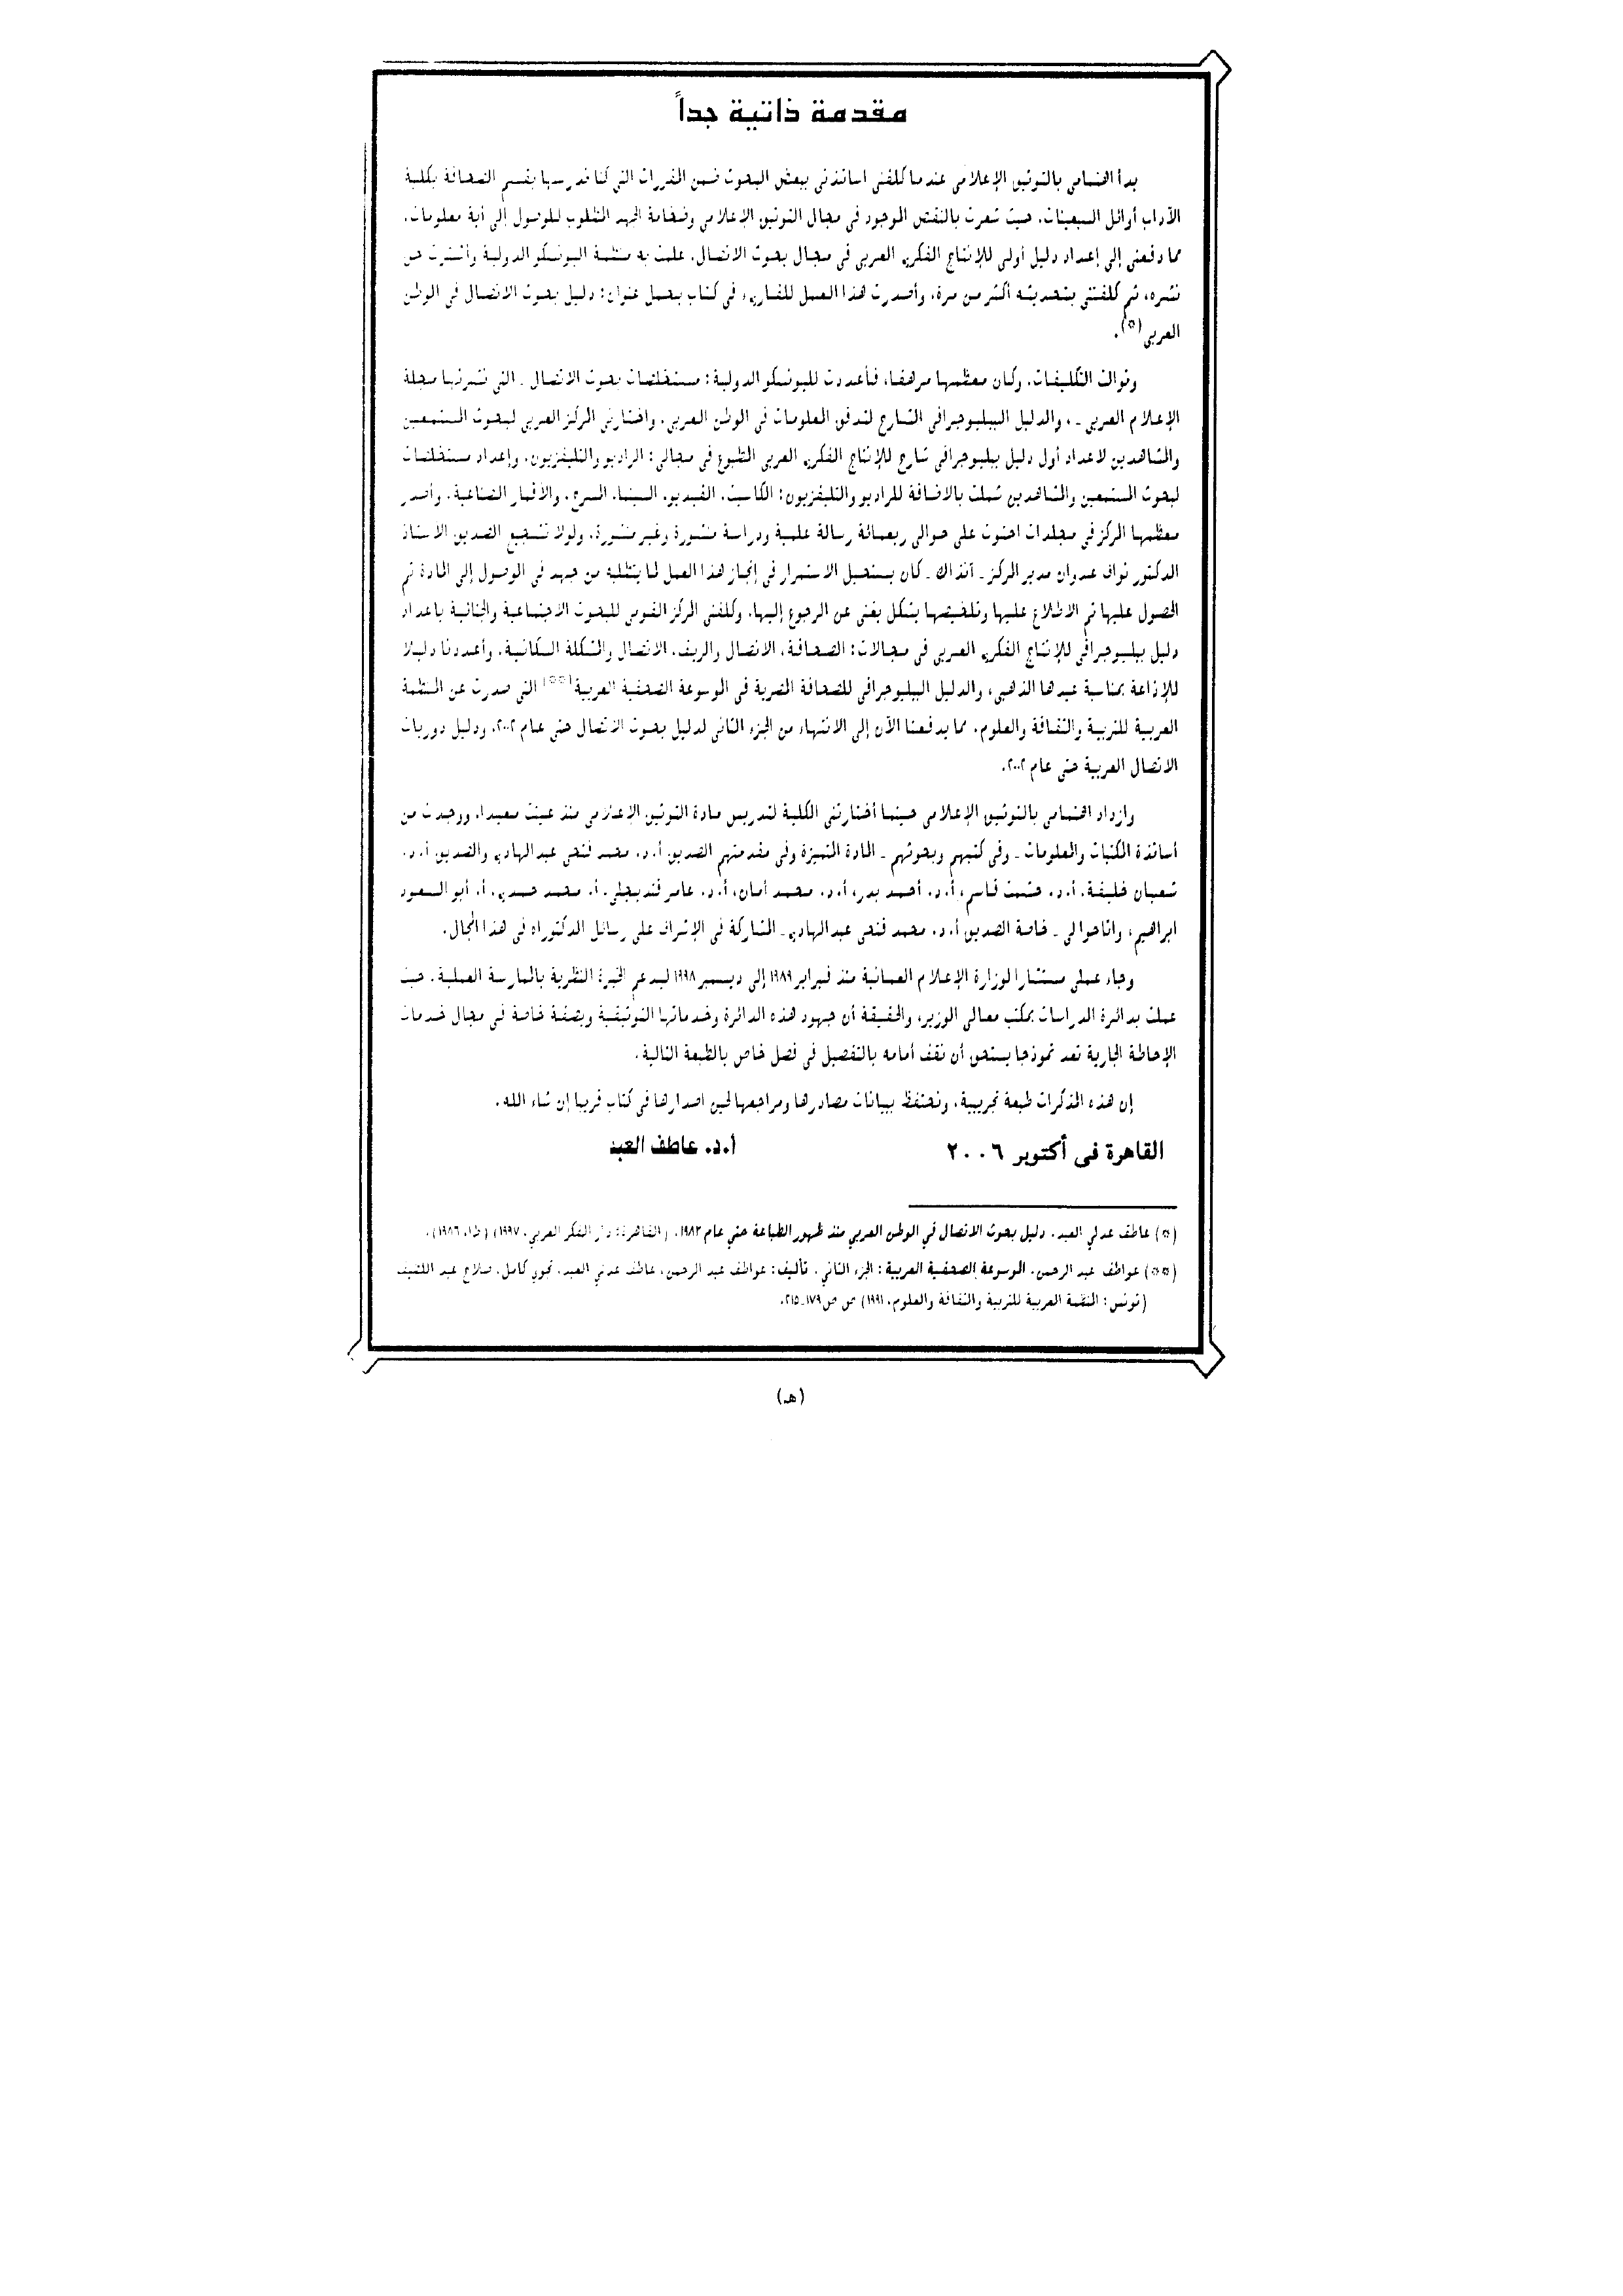 مقدمة ذاتية جداً
بدأ اهتمامى بالتوثيق الإعلامى عندما كلفنى اساتذتى ببعض البحوث ضمن المقررات التى كنا ندرسها بقسم الصحافة بكلية
الآداب أوائل السبعينات، حيث شعرت بالنقص الموجود فى مجال التوثيق الإعلامى وضخامة الجهد المطلوب للوصول إلى أية معلومات،
مما دفعنى إلى إعداد دليل أولى للإنتاج الفكرى العربى فى مجال بحوث الاتصال، علمت به منظمة اليونسكو الدولية وأشترت حق
نشره، ثم كلفتنى بتحديثه أكثر من مرة، وأصدرت هذا العمل للقارىء فى كتاب يحمل عنوان: دليل بحوث الاتصال فى الوطن
العربى(*).
وتوالت التكليفات، وكان معظمها مرهقا، فأعددت لليونسكو الدولية: مستخلصات بحوث الاتصال ـ التى نشرتها مجلة
الإعلام العربى ـ ، والدليل الببليوجرافى الشارح لتدفق المعلومات فى الوطن العربى، واختارنى المركز العربى لبحوث المستمعين
والمشاهدين لاعداد أول دليل ببليوجرافى شارح للإنتاج الفكرى العربى المطبوع فى مجالى: الراديو والتليفزيون، وإعداد مستخلصات
لبحوث المستمعين والمشاهدين شملت بالاضافة للراديو والتليفزيون: الكاسيت، الفيديو، السينما، المسرح، والاقمار الصناعية، وأصدر
معظمها المركز فى مجلدات احتوت على حوالى ربعمائة رسالة علمية ودراسة منشورة وغير منشورة، ولولا تشجيع الصديق الاستاذ
الدكتور نواف عدوان مدير المركز ـ آنذاك ـ كان يستحيل الاستمرار فى إنجاز هذا العمل لما يتطلبه من جهد فى الوصول إلى المادة ثم
الحصول عليها ثم الاطلاع عليها وتلخيصها بشكل يغنى عن الرجوع إليها، وكلفنى المركز القومى للبحوث الاجتماعية والجنائية باعداد
دليل ببليوجرافى للإنتاج الفكرى العربى فى مجالات: الصحافة، الاتصال والريف، الاتصال والمشكلة السكانية، وأعددنا دليلا
للإذاعة بمناسبة عيدها الذهبى، والدليل الببليوجرافى للصحافة المصرية فى الموسوعة الصحفية العربية(**) التى صدرت عن المنظمة
العربية للتربية والثقافة والعلوم، مما يدفعنا الآن إلى الانتهاء من الجزء الثانى لدليل بحوث الاتصال حتى عام ٢٠٠٢، ودليل دوريات
الاتصال العربية حتى عام ٢٠٠٢.
وازداد اهتمامى بالتوثيق الإعلامى حينما أختارتنى الكلية لتدريس مادة التوثيق الإعلامى منذ عينت معيدا، ووجدت من
أساتذة المكتبات والمعلومات ـ وفى كتبهم وبحوثهم ـ المادة المتميزة وفى مقدمتهم الصديق أ.د. محمد فتحى عبدالهادى والصديق أ.د.
شعبان خليفة، أ.د. حشمت قاسم، أ.د. أحمد بدر، أ.د. محمد أمان، أ.د. عامر قنديجلى، أ. محمد حمدى، أ. أبو السعود
ابراهيم، واتاحوا لى ـ خاصة الصديق أ.د. محمد فتحى عبدالهادى ـ المشاركة فى الإشراف على رسائل الدكتوراه فى هذا المجال.
وجاء عملى مستشارا لوزارة الإعلام العمانية منذ فبراير ١٩٨٩ إلى ديسمبر ١٩٩٨ ليدعم الخبرة النظرية بالممارسة العملية، حيث
عملت بدائرة الدراسات بمكتب معالى الوزير، والحقيقة أن جهود هذه الدائرة وخدماتها التوثيقية وبصفة خاصة فى مجال خدمات
الإحاطة الجارية تعد نموذجا يستحق أن نقف أمامه بالتفصيل فى فصل خاص بالطبعة التالية.
إن هذه المذكرات طبعة تجريبية، ونحتفظ ببيانات مصادرها ومراجعها لحين اصدارها فى كتاب قريبا إن شاء الله.
القاهرة فى أكتوبر ٢٠٠٦ أ.د. عاطف العبد
(*) عاطف عدلي العبد، دليل بحوث الاتصال في الوطن العربي منذ ظهور الطباعة حتي عام ١٩٨٢، (القاهرة: دار الفكر العربي، ١٩٩٧) (ط١، ١٩٨٦).
(**) عواطف عبد الرحمن، الموسوعة الصحفية العربية: الجزء الثاني، تأليف: عواطف عبد الرحمن، عاطف عدلي العبد، نجوي كامل، صلاح عبد اللطيف
(تونس: المنظمة العربية للتربية والثقافة والعلوم، ١٩٩١) ص ص ١٧٩ـ٢١٥.
(هـ)